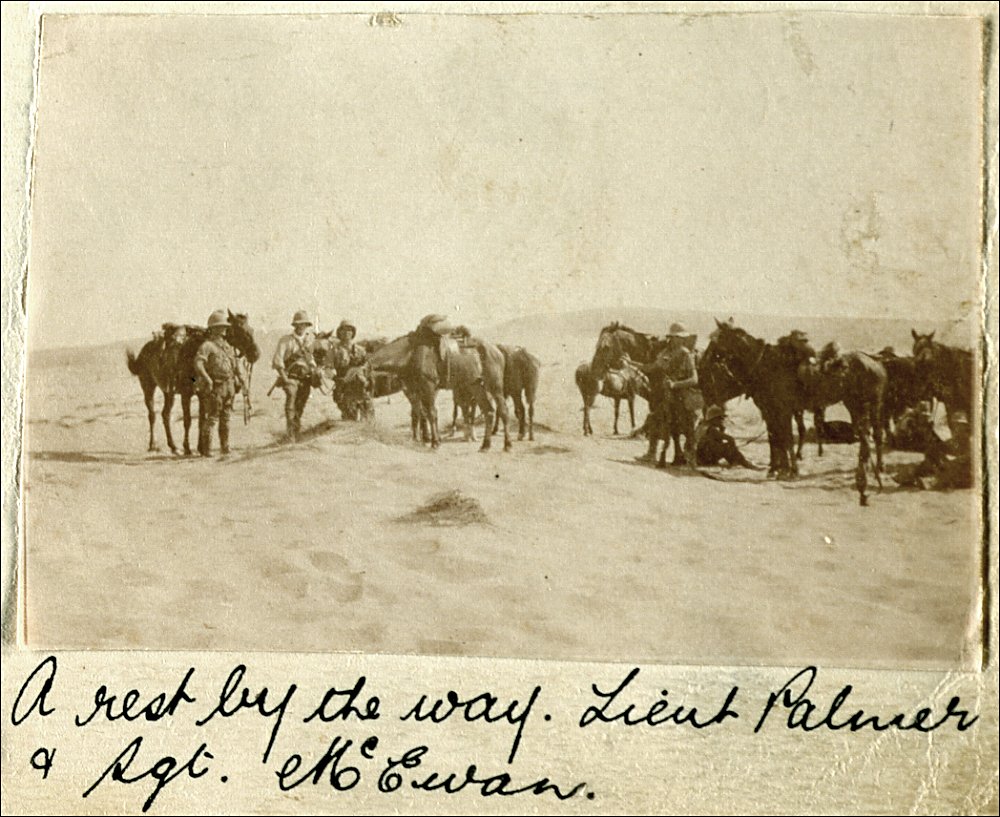 A rest by the way. Lieut Palmer
& Sgt. McEwan.